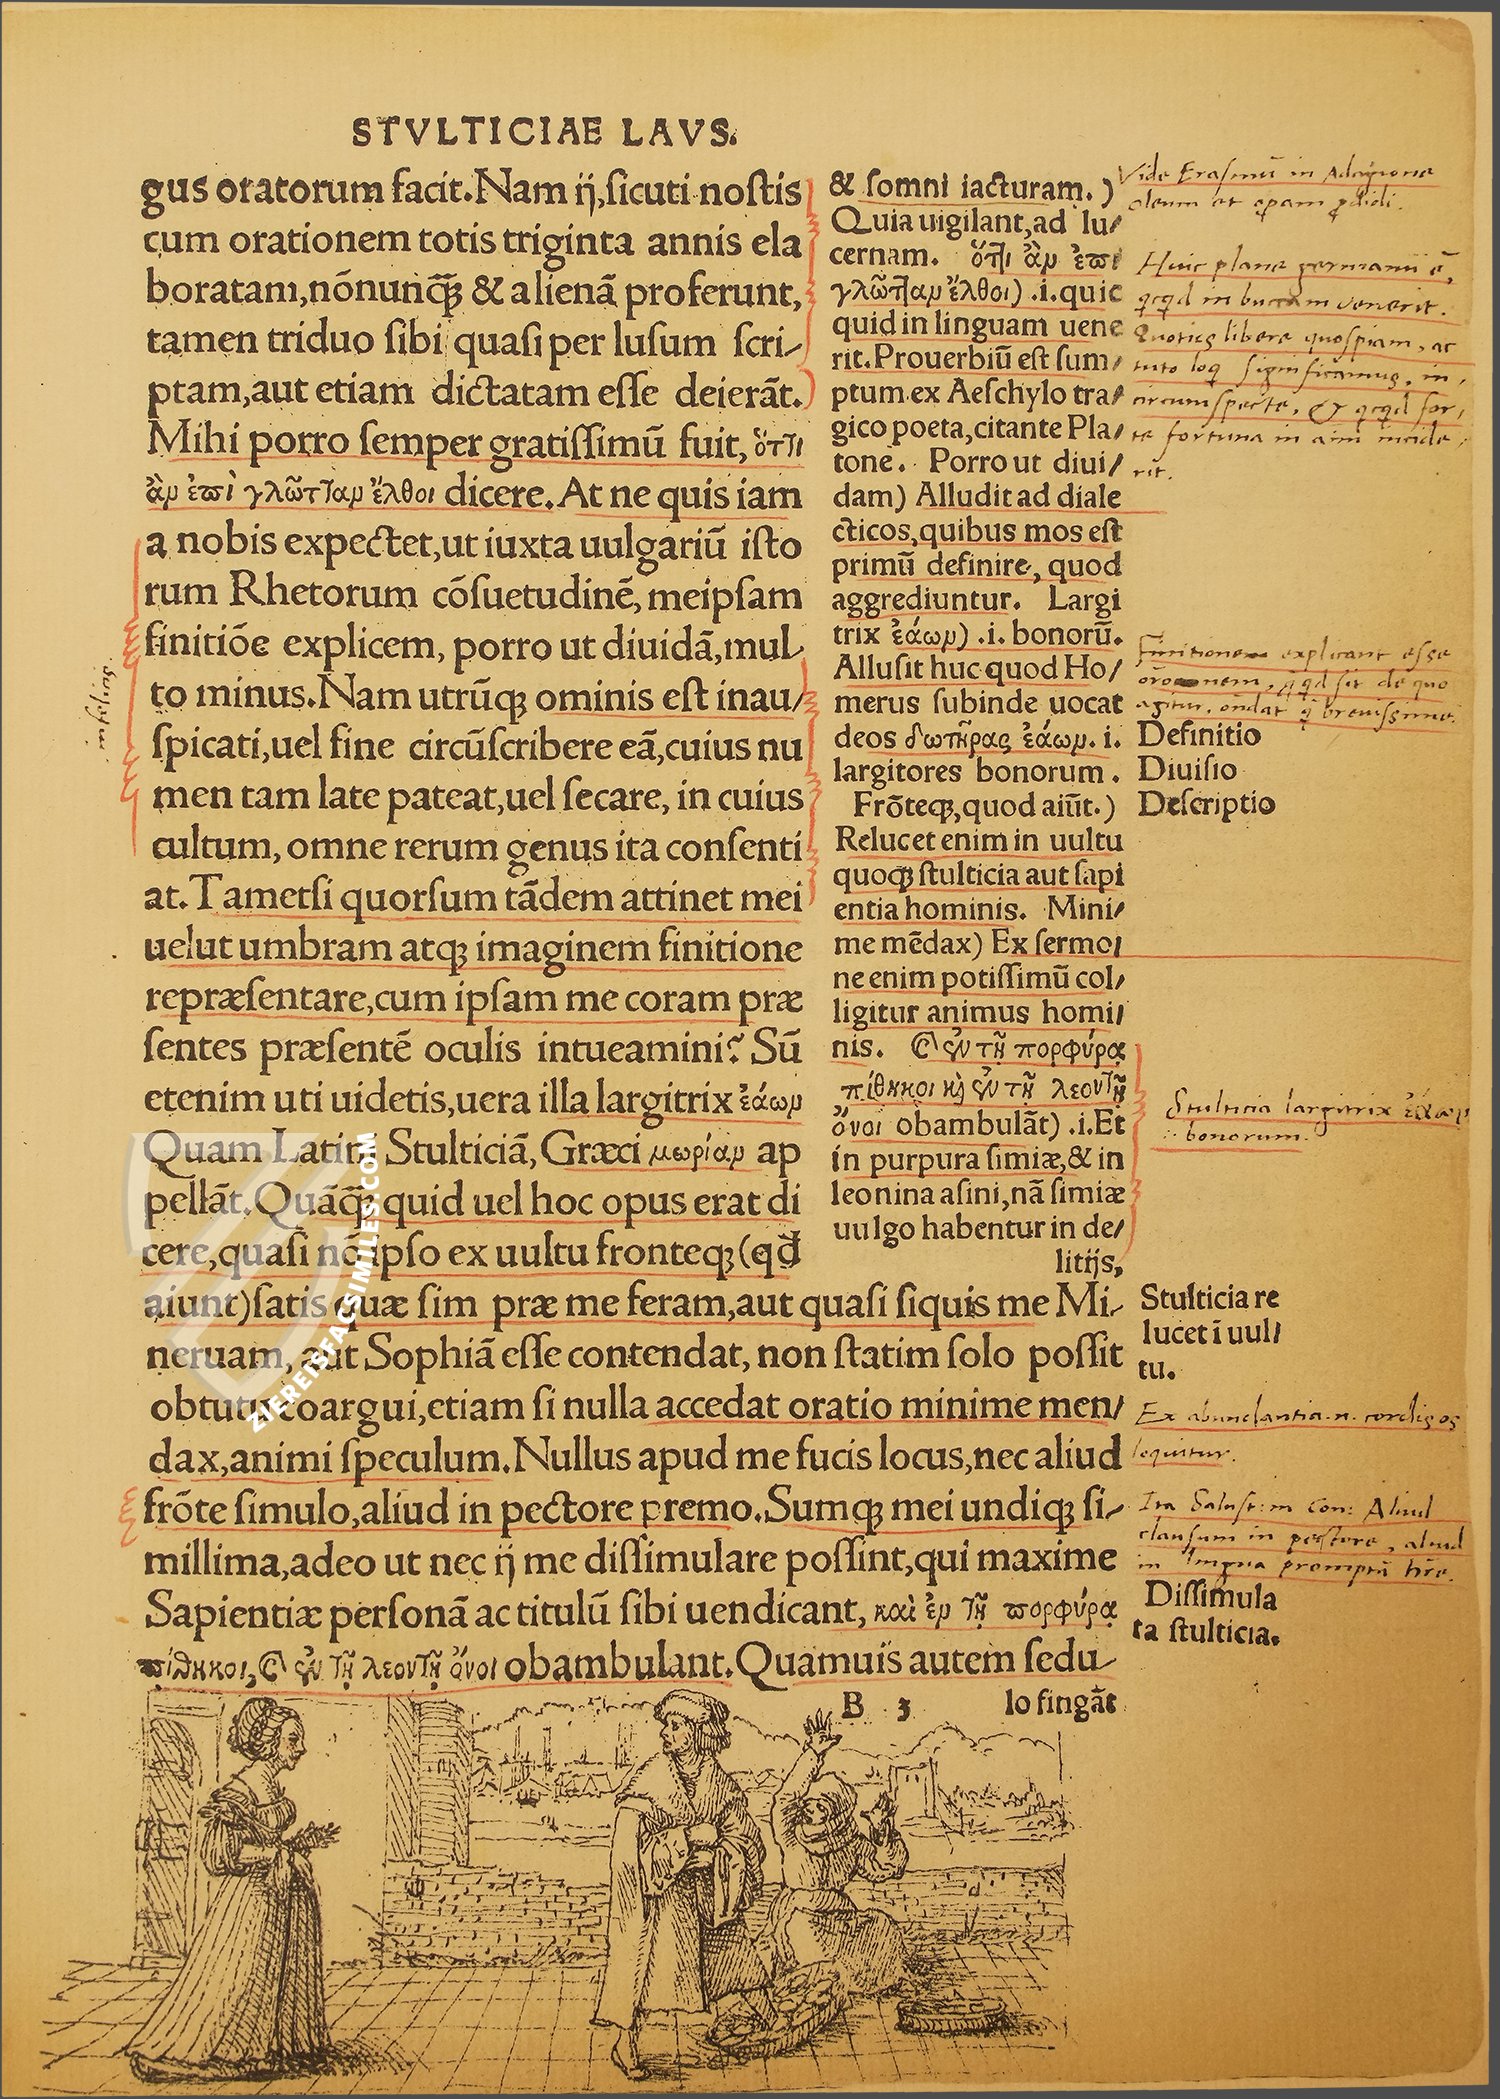 STVLTICIAE LAVS.
gus oratorum facit. Nam ij, sicuti nostis
cum orationem totis triginta annis ela
boratam, nōnunq̄ꝫ & alienā proferunt,
tamen triduo sibi quasi per lusum scri-
ptam, aut etiam dictatam esse deierāt.
Mihi porro semper gratissimū fuit, ὅτ̓ι
ἂν ἐπὶ γλῶτταν ἔλθοι dicere. At ne quis iam
a nobis expectet, ut iuxta uulgariū isto
rum Rhetorum cōsuetudinē, meipsam
finitiōe explicem, porro ut diuidā, mul-
to minus. Nam utrūqꝫ ominis est inau/
spicati, uel fine circūscribere eā, cuius nu
men tam late pateat, uel secare, in cuius
cultum, omne rerum genus ita consenti
at. Tametsi quorsum tādem attinet mei
uelut umbram atqꝫ imaginem finitione
repræsentare, cum ipsam me coram præ
sentes præsentē oculis intueamini? Sū
etenim uti uidetis, uera illa largitrix ἐάων
Quam Latini Stulticiā, Græci μωρίαν ap
pellāt. Quāq̄ꝫ quid uel hoc opus erat di
cere, quasi nō ipso ex uultu fronteqꝫ (qd̄
aiunt) satis quæ sim præ me feram, aut quasi siquis me Mi-
neruam, aut Sophiā esse contendat, non statim solo possit
obtutu coargui, etiam si nulla accedat oratio minime men/
dax, animi speculum. Nullus apud me fucis locus, nec aliud
frōte simulo, aliud in pectore premo. Sumqꝫ mei undiqꝫ si-
millima, adeo ut nec ij me dissimulare possint, qui maxime
Sapientiæ personā ac titulū sibi uendicant, καὶ ἐν τῇ πορφύρᾳ
πίθηκοι, καὶ ἐν τῇ λεοντῇ ὄνοι obambulant. Quamuis autem sedu-
B 3 lo fingāt
& somni iacturam.)
Quia uigilant, ad lu/
cernam. ὅτ̓ι ἂν ἐπὶ
γλῶτταν ἔλθοι) .i. quic
quid in linguam uene
rit. Prouerbiū est sum/
ptum ex Aeschylo tra/
gico poeta, citante Pla/
tone. Porro ut diui/
dam) Alludit ad diale
cticos, quibus mos est
primū definire, quod
aggrediuntur. Largi
trix ἐάων) .i. bonorū.
Allusit huc quod Ho/
merus subinde uocat
deos δωτῆρας ἐάων. i.
largitores bonorum.
Frōteqꝫ, quod aiūt.)
Relucet enim in uultu
quoqꝫ stulticia aut sapi
entia hominis. Mini/
me mēdax) Ex sermo/
ne enim potissimū col/
ligitur animus homi/
nis. καὶ ἐν τῇ πορφύρᾳ
πίθηκοι καὶ ἐν τῇ λεοντῇ
ὄνοι obambulāt) .i. Et
in purpura simiæ, & in
leonina asini, nā simiæ
uulgo habentur in de/
litijs,
Vide Erasmū in Adagione
oleum et opam pdidi.
Huic plane germanū ē,
qcqd in buccam venerit.
Quoties libere quospiam, ac
tuto loq significamus, in,
circumspecte, & qcqd for,
te fortuna in aim incide,
rit.
Finitionem explicant esse
orōnem, q qd sit de quo
agitur, ondat q brevissime.
Definitio
Diuisio
Descriptio
Stulticia largitrix ἐάων
bonorum.
Stulticia re
lucet ī uul/
tu.
Ex abundantia .n. cordis os
loquitur.
Ita Salust: in Con: Aliud
clausum in pectore, aliud
in lingua promptū hre.
Dissimula
ta stulticia.
ZIEREISFACSIMILES.COM